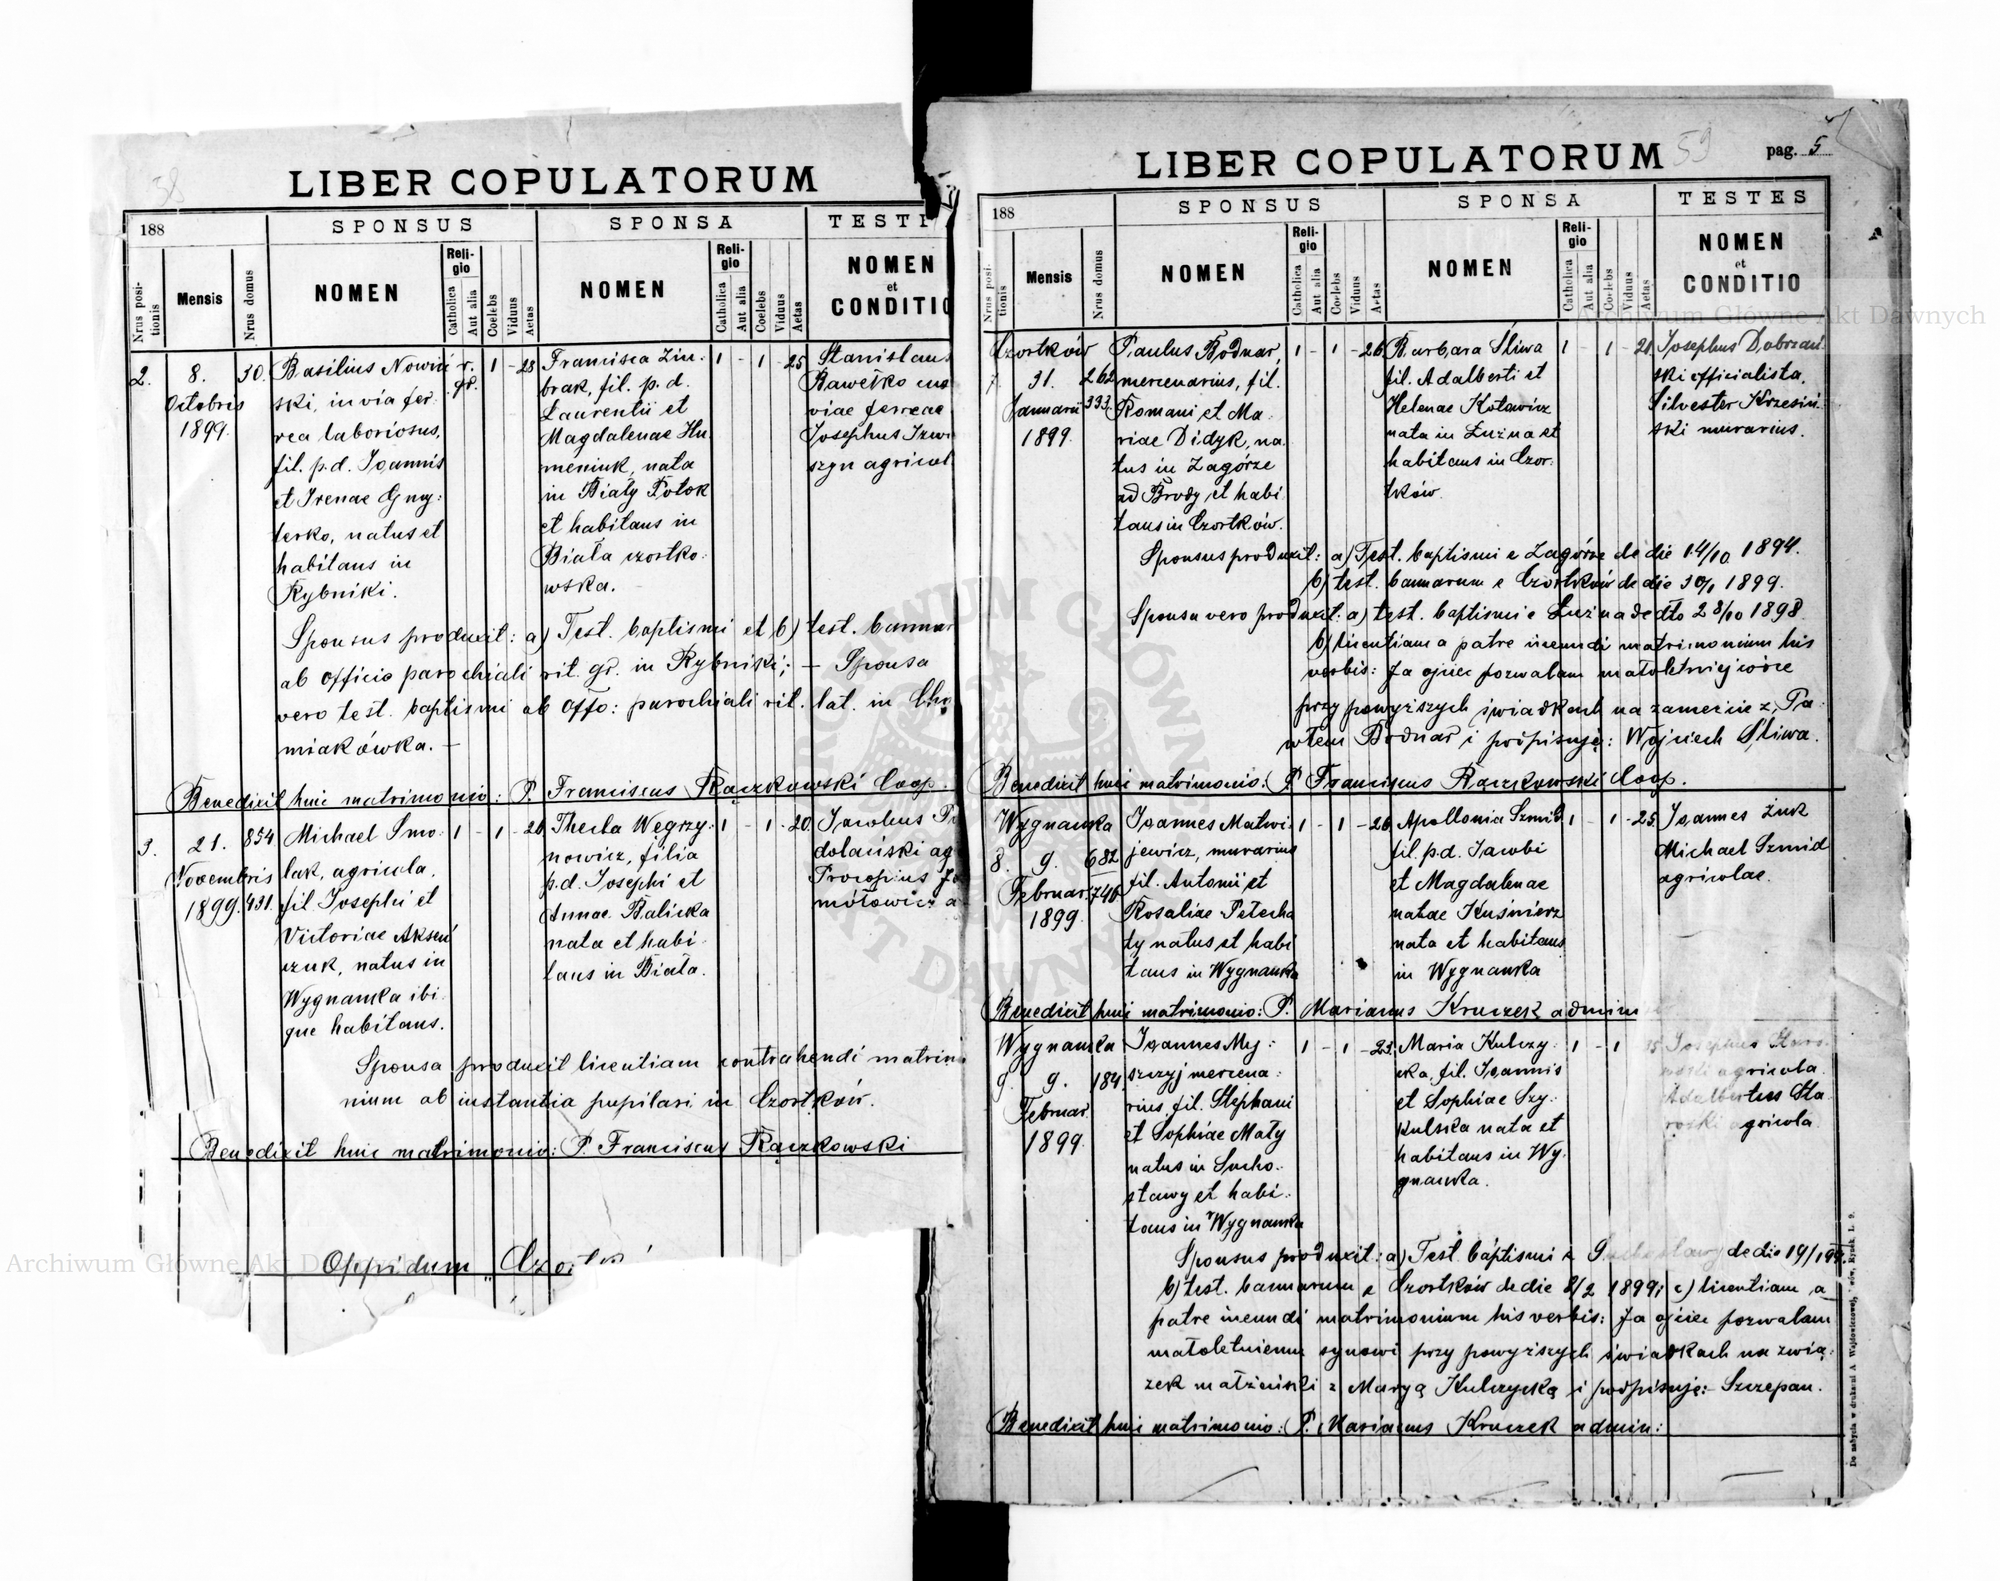 38
LIBER COPULATORUM
188
SPONSUS
SPONSA
TESTI
Nrus positionis
Mensis
Nrus domus
NOMEN
Religio
Catholica
Aut alia
Coelebs
Viduus
Aetas
NOMEN
Religio
Catholica
Aut alia
Coelebs
Viduus
Aetas
NOMEN
et
CONDITIO
2.
8.
Octobris
1899.
30.
Basilius Nowiń
ski, in via fer
rea laboriosus,
fil. p.d. Joannis
et Irenae Gny:
terko, natus et
habitans in
Rybniki.
r.
gr.
1 - 28
Francisca Zim
brak, fil. p.d.
Laurentii et
Magdalenae Hu
meniuk, nata
in Biały Potok
et habitans in
Biała czortko
wska.
1 - 1 - 25
Stanislaus
Bawełko
viae ferreae
Josephus
szyn agricol
Sponsus produxit: a) Test. baptismi et b) test. bannor
ab officio parochiali rit. gr. in Rybniki; – Sponsa
vero test. baptismi ab Offo: parochiali rit. lat. in Cho
miakówka. –
Benedixit huic matrimonio: P. Franciscus Rączkowski Coop.
3.
21.
Novembris
1899.
854
431.
Michael Smo
lak, agricola,
fil. Josephi et
Victoriae Aksen
czuk, natus in
Wygnanka ibi
que habitans.
1 - 1 - 26
Thecla Węgrzy
nowicz, filia
p.d. Josephi et
Annae Balicka
nata et habi
tans in Biała.
1 - 1 - 20
Jacobus P
dolański ag
Procopius
mółowicz a
Sponsa produxit licentiam contrahendi matrim
nium ab instantia pupilari in Czortków.
Benedixit huic matrimonio: P. Franciscus Rączkowski
Oppidum Czortk
59
pag. 5
LIBER COPULATORUM
188
SPONSUS
SPONSA
TESTES
Nrus positionis
Mensis
Nrus domus
NOMEN
Religio
Catholica
Aut alia
Coelebs
Viduus
Aetas
NOMEN
Religio
Catholica
Aut alia
Coelebs
Viduus
Aetas
NOMEN
et
CONDITIO
Czortków
7.
31.
Januarii
1899.
262
333
Paulus Bodnar,
mercenarius, fil.
Romani et Ma
riae Didyk, na
tus in Zagórze
ad Brody et habi
tans in Czortków.
1 - 1 - 26
Barbara Śliwa
fil. Adalberti et
Helenae Kotowicz
nata in Łużna et
habitans in Czor
tków.
1 - 1 - 21
Josephus Dobrzań
ski officialista,
Silvester Krzesiń
ski murarius.
Sponsus produxit: a) Test. baptismi e Zagórze de die 14/10 1894.
b) test. bannorum e Czortków de die 30/1 1899.
Sponsa vero produxit: a) test. baptismi e Łużna de dto 28/10 1898
b) licentiam a patre ineundi matrimonium his
verbis: Ja ojciec pozwalam małoletniej córce
przy powyższych świadkach na zamęźcie z Pa
włem Bodnar i podpisuję: Wojciech Śliwa.
Benedixit huic matrimonio: P. Franciscus Rączkowski Coop.
Wygnanka
8.
9.
Februar.
1899.
682
746
Joannes Matwi
jewicz, murarius
fil. Antonii et
Rosaliae Petecha
ty natus et habi
tans in Wygnanka
1 - 1 - 26
Apollonia Szmid
fil. p.d. Jacobi
et Magdalenae
natae Kuśnierz
nata et habitans
in Wygnanka
1 - 1 - 25
Joannes Żuk
Michael Szmid
agricolae.
Benedixit huic matrimonio: P. Marianus Kruczek admin
Wygnanka
9.
9.
Februar
1899.
184
Joannes Myj:
szczyj mercena:
rius, fil. Stephani
et Sophiae Mały
natus in Sucho
stawy et habi
tans in Wygnanka
1 - 1 - 23
Maria Kulczy
cka, fil. Joannis
et Sophiae Szy
kulska nata et
habitans in Wy
gnanka.
1 - 1
Josephus
agricola
Adalbertus Sta
roski agricola
Sponsus produxit: a) Test. baptismi e de die
b) test. bannorum e Czortków de die 8/2 1899; c) licentiam a
patre ineundi matrimonium his verbis: Ja ojciec pozwalam
małoletniemu synowi przy powyższych świadkach na zwią
zek małżeński z Maryą Kulczycką i podpisuję: – Szczepan.
Benedixit huic matrimonio: P. Marianus Kruczek admin:
Archiwum Główne Akt Dawnych
Archiwum Główne Akt Dawnych
ARCHIWUM GŁÓWNE AKT DAWNYCH